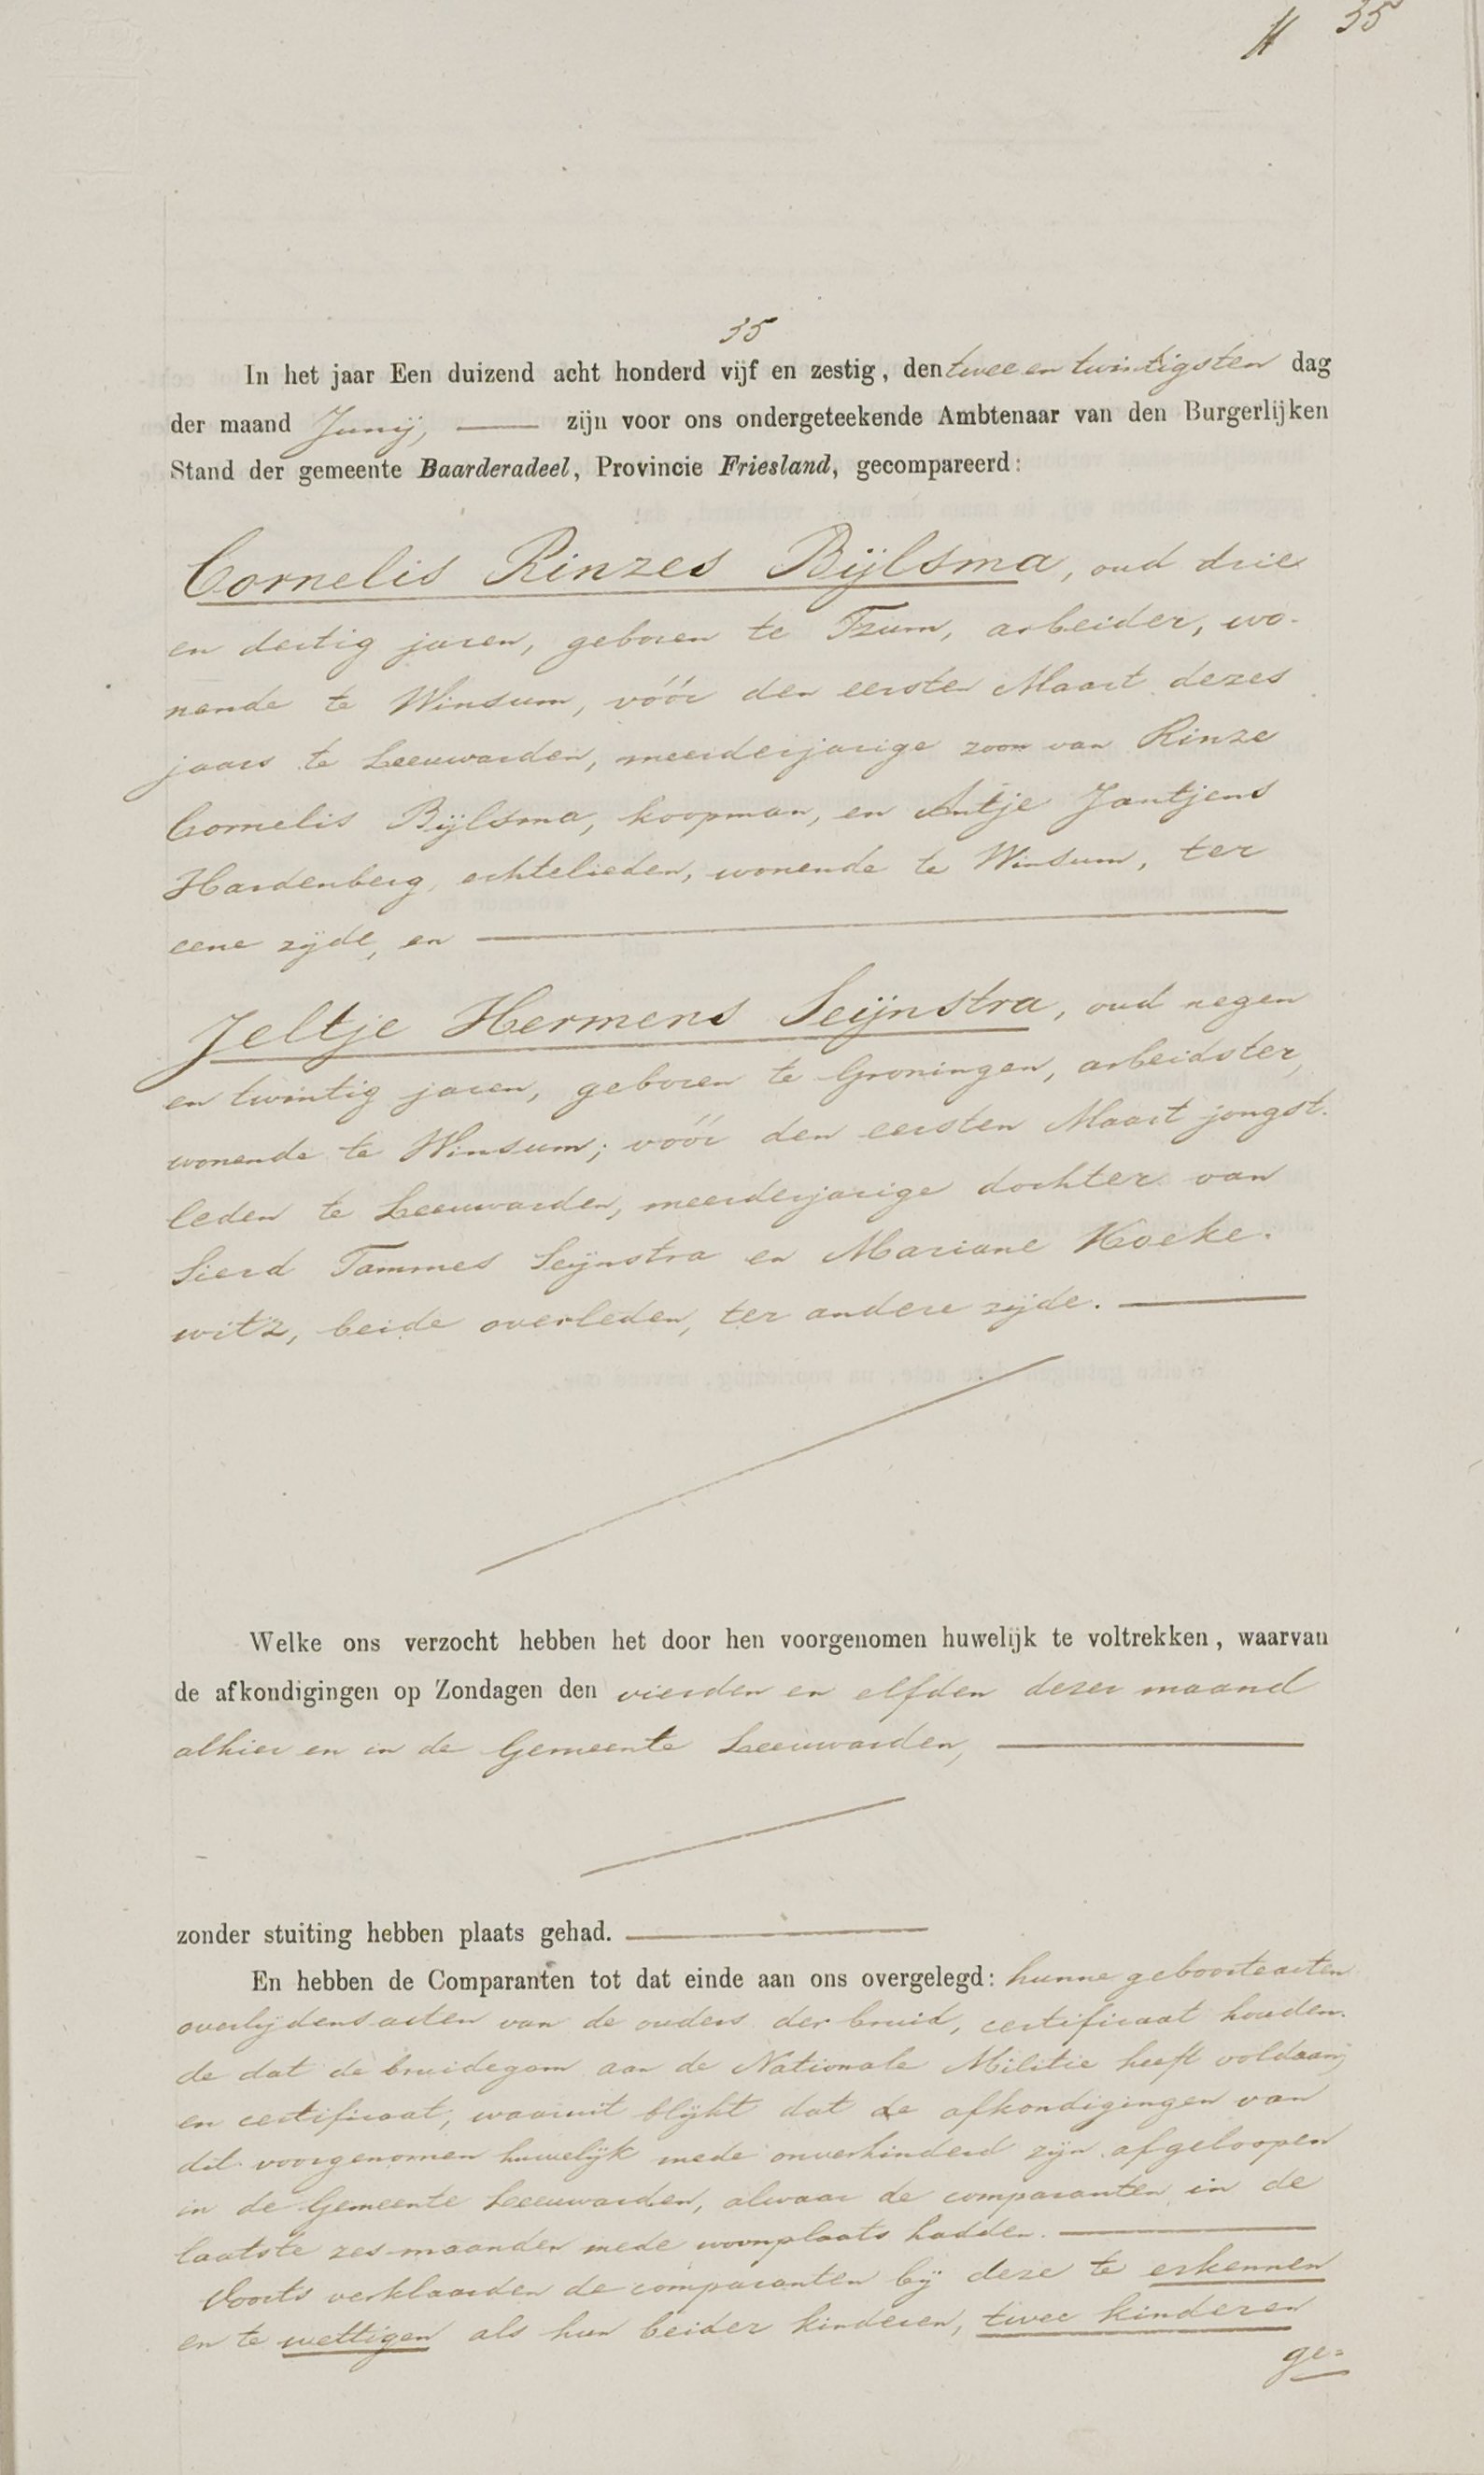 35
35
In het jaar Een duizend acht honderd vijf en zestig, den twee en twintigsten dag
der maand Junij, zijn voor ons ondergeteekende Ambtenaar van den Burgerlijken
Stand der gemeente Baarderadeel, Provincie Friesland, gecompareerd:
Cornelis Rinzes Bijlsma, oud drie
en dertig jaren, geboren te Tzum, arbeider, wo-
nende te Winsum, vóór den eersten Maart dezes
jaars te Leeuwarden, meerderjarige zoon van Rinze
Cornelis Bijlsma, koopman, en Antje Jantjens
Hardenberg, echtelieden, wonende te Winsum, ter
eene zijde, en
Jeltje Hermens Seijnstra, oud negen
en twintig jaren, geboren te Groningen, arbeidster,
wonende te Winsum; vóór den eersten Maart jongst-
leden te Leeuwarden, meerderjarige dochter van
Sierd Tammes Seijnstra en Mariane Koeke-
witz, beide overleden, ter andere zijde.
Welke ons verzocht hebben het door hen voorgenomen huwelijk te voltrekken, waarvan
de afkondigingen op Zondagen den vierden en elfden dezer maand
alhier en in de Gemeente Leeuwarden,
zonder stuiting hebben plaats gehad.
En hebben de Comparanten tot dat einde aan ons overgelegd: hunne geboorteacten
overlijdensacten van de ouders der bruid, certificaat houden-
de dat de bruidegom aan de Nationale Militie heeft voldaan;
en certificaat, waaruit blijkt dat de afkondigingen van
dit voorgenomen huwelijk mede onverhinderd zijn afgeloopen
in de Gemeente Leeuwarden, alwaar de comparanten in de
laatste zes maanden mede woonplaats hadden.
Voorts verklaarden de comparanten bij deze te erkennen
en te wettigen als hun beider kinderen, twee kinderen
ge=